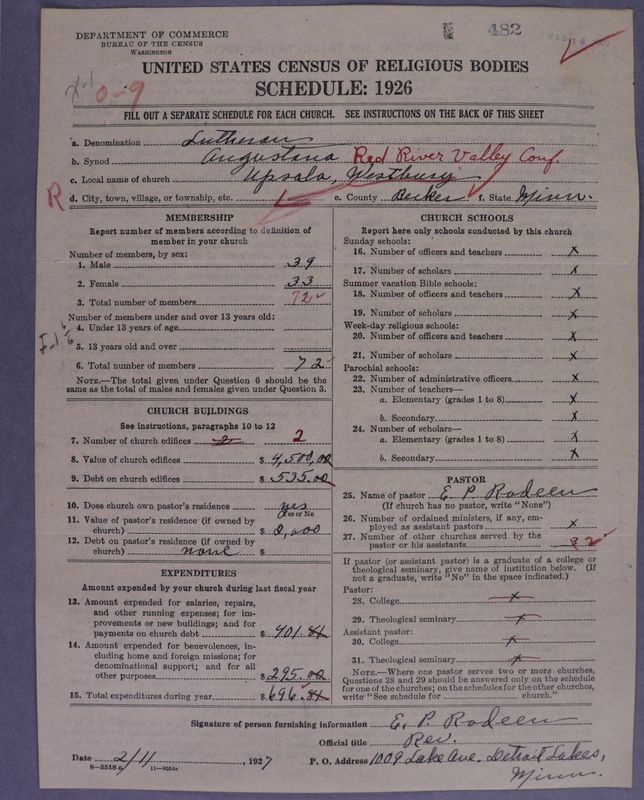 DEPARTMENT OF COMMERCE
BUREAU OF THE CENSUS
WASHINGTON
482
UNITED STATES CENSUS OF RELIGIOUS BODIES
SCHEDULE: 1926
0-9
FILL OUT A SEPARATE SCHEDULE FOR EACH CHURCH. SEE INSTRUCTIONS ON THE BACK OF THIS SHEET
a. Denomination Lutheran
b. Synod Augustana Red River Valley Conf.
c. Local name of church Upsala, Westbury
R
d. City, town, village, or township, etc. e. County Becker f. State Minn.
MEMBERSHIP
Report number of members according to definition of
member in your church
Number of members, by sex:
1. Male 39
2. Female 33
3. Total number of members 72
Number of members under and over 13 years old:
4. Under 13 years of age
5. 13 years old and over
6. Total number of members 72
NOTE.—The total given under Question 6 should be
the same as the total of males and females given under Question 3.
CHURCH BUILDINGS
See instructions, paragraphs 10 to 12
7. Number of church edifices 2 2
8. Value of church edifices $ 4,500,00
9. Debt on church edifices $ 535.00
10. Does church own pastor's residence? yes
Yes or No
11. Value of pastor's residence (if owned by
church) $
12. Debt on pastor's residence (if owned by
church) none $
EXPENDITURES
Amount expended by your church during last fiscal year
13. Amount expended for salaries, repairs,
and other running expenses; for im-
provements or new buildings; and for
payments on church debt $ 401.81
14. Amount expended for benevolences, in-
cluding home and foreign missions; for
denominational support; and for all
other purposes $ 295.00
15. Total expenditures during year $ 696.81
CHURCH SCHOOLS
Report here only schools conducted by this church
Sunday schools:
16. Number of officers and teachers x
17. Number of scholars x
Summer vacation Bible schools:
18. Number of officers and teachers x
19. Number of scholars x
Week-day religious schools:
20. Number of officers and teachers x
21. Number of scholars x
Parochial schools:
22. Number of administrative officers x
23. Number of teachers—
a. Elementary (grades 1 to 8) x
b. Secondary x
24. Number of scholars—
a. Elementary (grades 1 to 8) x
b. Secondary x
PASTOR
25. Name of pastor E. P. Rodeen
(If church has no pastor, write "None")
26. Number of ordained ministers, if any, em-
ployed as assistant pastors x
27. Number of other churches served by the
pastor or his assistants 3 2
If pastor (or assistant pastor) is a graduate of a college or
theological seminary, give name of institution below. (If
not a graduate, write "No" in the space indicated.)
Pastor:
28. College x
29. Theological seminary x
Assistant pastor:
30. College x
31. Theological seminary x
NOTE.—Where one pastor serves two or more churches,
Questions 28 and 29 should be answered only on the schedule
for one of the churches; on the schedules for the other churches,
write "See schedule for church."
Signature of person furnishing information E. P. Rodeen
Official title Rev.
Date 2/11, 1927 P. O. Address 1009 Lake Ave. Detroit Lakes,
Minn.